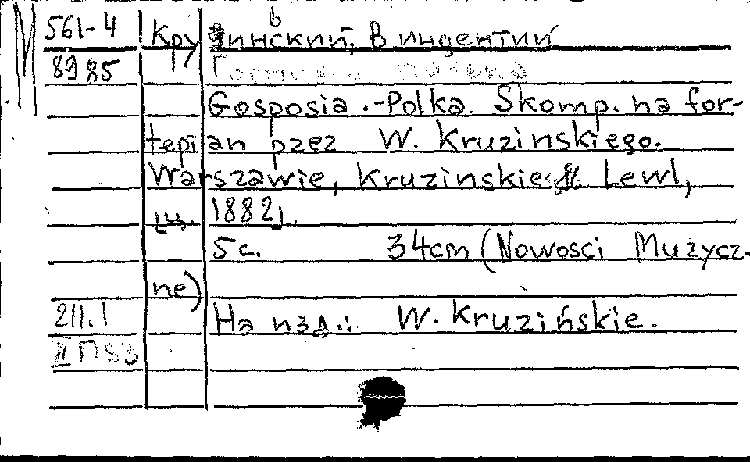 561-4 Кружинский, Винцентий
8985
Gosposia.-Polka. Skomp. na for-
tepian przez W. Kruzinskiego.
Warszawie, Kruzinskie Lewl,
ц. 1882,.
5 c. 34cm (Nowosci Muzycz-
ne)
211.1 На изд.: W. Kruzińskie.